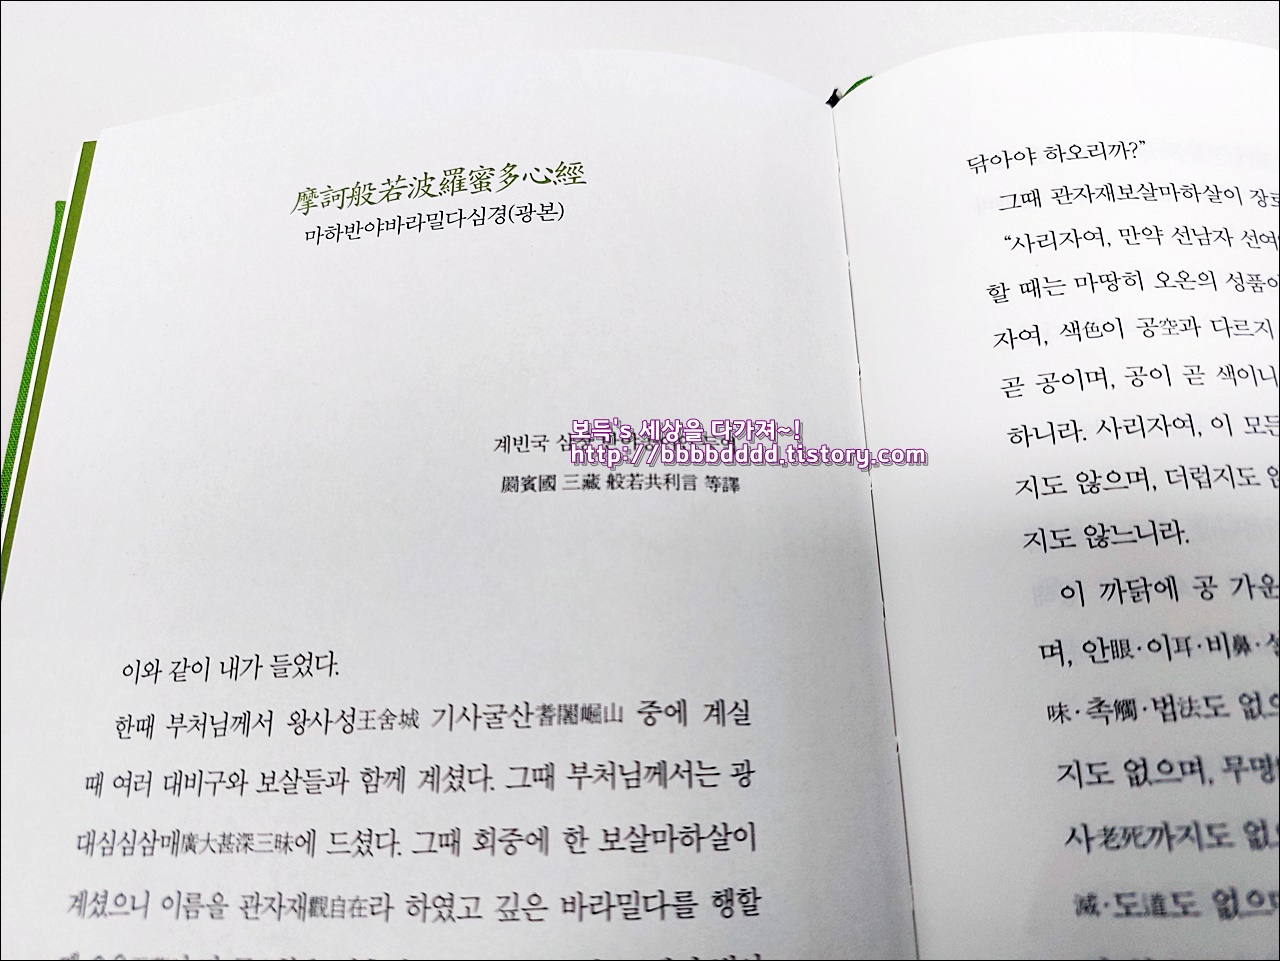 摩訶般若波羅蜜多心經
마하반야바라밀다심경(광본)
계빈국
보득's 세상을 다가져~!
http://bbbbdddd.tistory.com
罽賓國 三藏 般若共利言 等譯
이와 같이 내가 들었다.
한때 부처님께서 왕사성王舍城 기사굴산耆闍崛山 중에 계실
때 여러 대비구와 보살들과 함께 계셨다. 그때 부처님께서는 광
대심심삼매廣大甚深三昧에 드셨다. 그때 회중에 한 보살마하살이
계셨으니 이름을 관자재觀自在라 하였고 깊은 바라밀다를 행할
닦아야 하오리까?”
그때 관자재보살마하살이 장로
“사리자여, 만약 선남자 선여
할 때는 마땅히 오온의 성품이
자여, 색色이 공空과 다르지
곧 공이며, 공이 곧 색이니
하니라. 사리자여, 이 모든
지도 않으며, 더럽지도 않
지도 않느니라.
이 까닭에 공 가운
며, 안眼·이耳·비鼻·설
味·촉觸·법法도 없으
지도 없으며, 무명
사老死까지도 없
滅·도道도 없으며